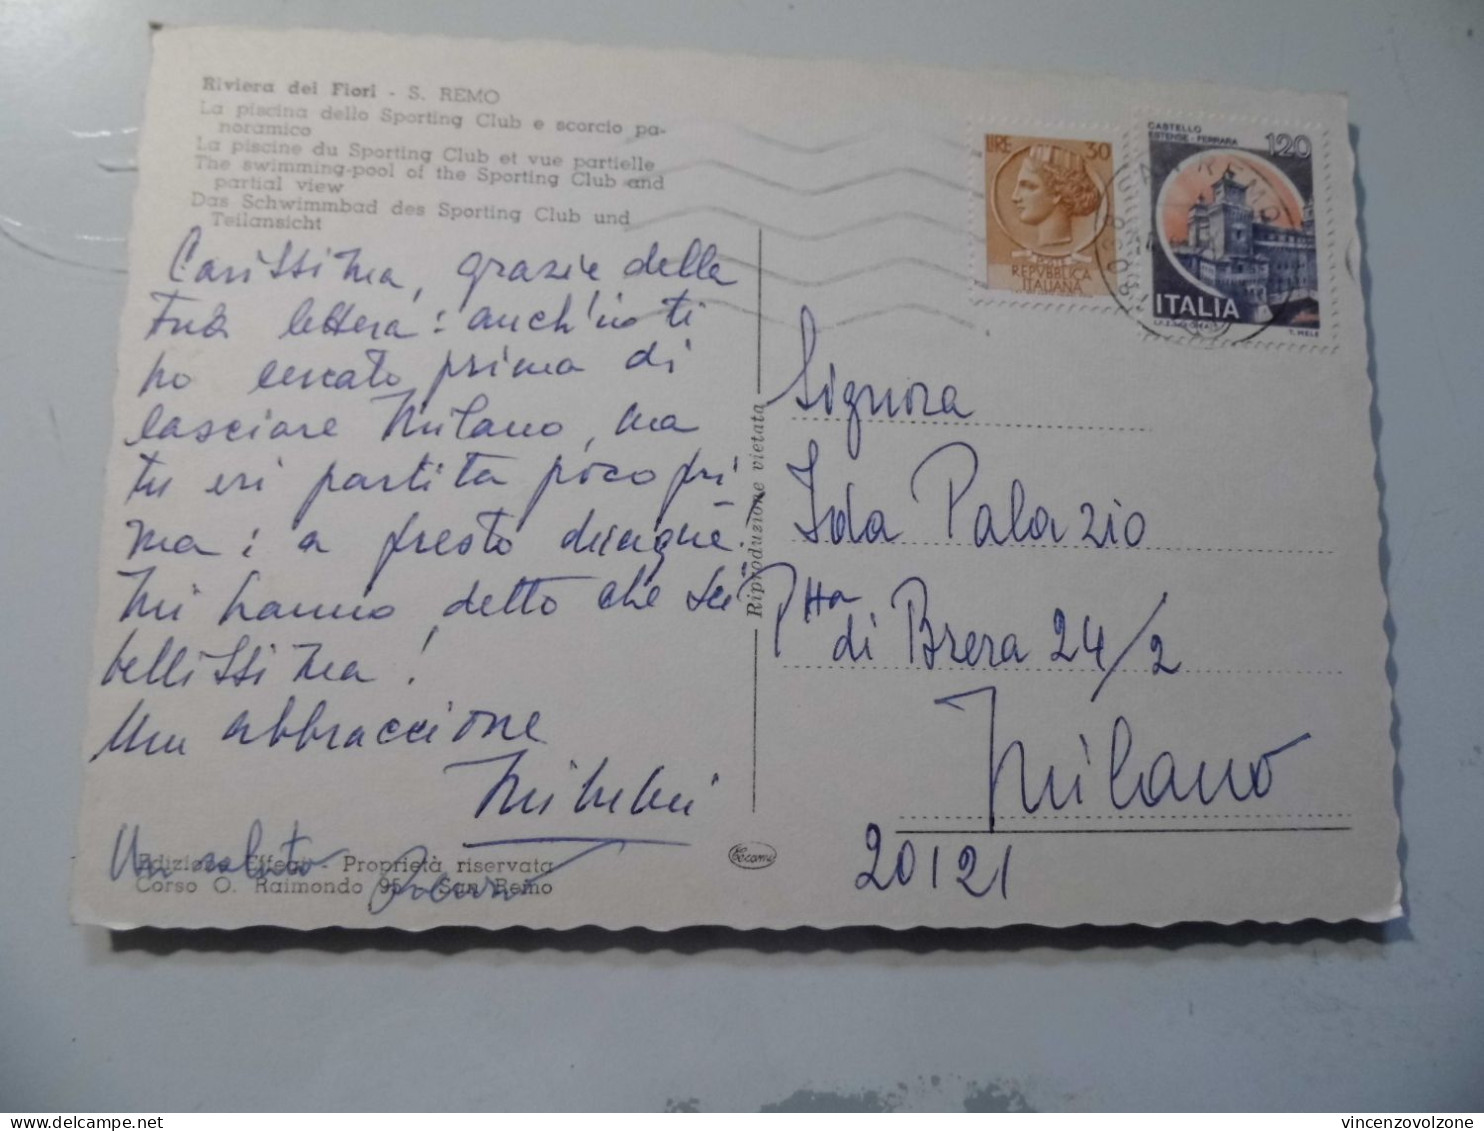 Riviera dei Fiori - S. REMO
La piscina dello Sporting Club e scorcio pa-
noramico
La piscine du Sporting Club et vue partielle
The swimming-pool of the Sporting Club and
partial view
Das Schwimmbad des Sporting Club und
Teilansicht
Carissima, grazie della
tua lettera: anch'io ti
ho cercato prima di
lasciare Milano, ma
tu eri partita poco pri
ma: a presto dunque!
Mi hanno detto che sei
bellissima!
Un abbraccione
Un saluto
Edizione Effegi - Proprietà riservata
Corso O. Raimondo 95 - San Remo
Riproduzione vietata
LIRE 30
REPVBBLICA
ITALIANA
CASTELLO
ESTENSE - FERRARA
120
ITALIA
T. MELE
SAN REMO
Signora
Ida Palazio
P.tta di Brera 24/2
Milano
20121
vincenzovolzone